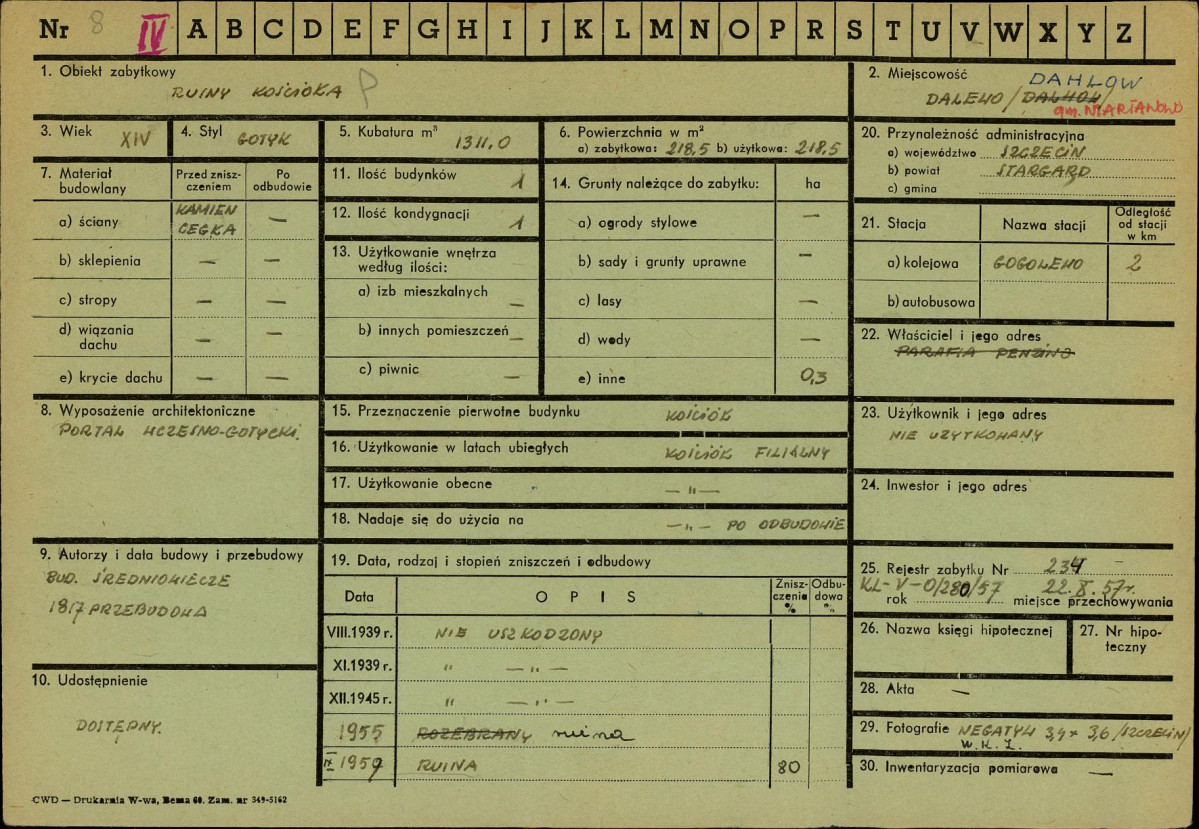 Nr 8 IV A B C D E F G H I J K L M N O P R S T U V W X Y Z
1. Obiekt zabytkowy
RUINY KOŚCIOŁA P
2. Miejscowość DAHLOW
DALEWO / DALHOW /
gm. MARIANOWO
3. Wiek XIV
4. Styl GOTYK
5. Kubatura m³ 1311,0
6. Powierzchnia w m²
a) zabytkowa: 218,5 b) użytkowa: 218,5
7. Materiał budowlany
Przed zniszczeniem
Po odbudowie
a) ściany KAMIEŃ CEGŁA —
b) sklepienia — —
c) stropy — —
d) wiązania dachu — —
e) krycie dachu — —
8. Wyposażenie architektoniczne
PORTAL WCZESNO-GOTYCKI.
9. Autorzy i data budowy i przebudowy
BUD. ŚREDNIOWIECZE
1817 PRZEBUDOWA
10. Udostępnienie
DOSTĘPNY.
11. Ilość budynków 1
12. Ilość kondygnacji 1
13. Użytkowanie wnętrza
według ilości:
a) izb mieszkalnych —
b) innych pomieszczeń —
c) piwnic —
14. Grunty należące do zabytku: ha
a) ogrody stylowe —
b) sady i grunty uprawne —
c) lasy —
d) wody —
e) inne 0,3
15. Przeznaczenie pierwotne budynku KOŚCIÓŁ
16. Użytkowanie w latach ubiegłych KOŚCIÓŁ FILIALNY
17. Użytkowanie obecne — " —
18. Nadaje się do użycia na — " — PO ODBUDOWIE
19. Data, rodzaj i stopień zniszczeń i odbudowy
Data
O P I S
Zniszczenia %
Odbudowa %
VIII.1939 r. NIE USZKODZONY
XI.1939 r. " — " —
XII.1945 r. " — " —
1955 ROZEBRANY ruina
IX 1959 RUINA 80
20. Przynależność administracyjna
a) województwo SZCZECIN
b) powiat STARGARD
c) gmina
21. Stacja
Nazwa stacji
Odległość od stacji w km
a) kolejowa GOGOLEWO 2
b) autobusowa
22. Właściciel i jego adres
PARAFIA PENZINO
23. Użytkownik i jego adres
NIE UŻYTKOWANY
24. Inwestor i jego adres
25. Rejestr zabytku Nr 234
KL-V-0/280/57 22.X.57r.
rok miejsce przechowywania
26. Nazwa księgi hipotecznej
27. Nr hipoteczny
28. Akta —
29. Fotografie NEGATYW 3,4 × 3,6 /SZCZECIN/
W.K.Z.
30. Inwentaryzacja pomiarowa —
CWD — Drukarnia W-wa, Bema 60. Zam. nr 349-5162